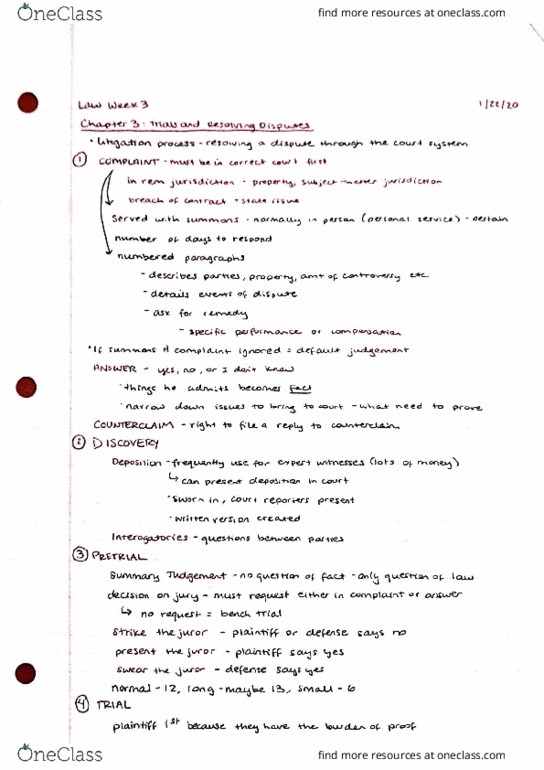 OneClass
find more resources at oneclass.com
Law Week 3
1/22/20
Chapter 3: Trials and Resolving Disputes
• Litigation process - resolving a dispute through the court system
① COMPLAINT - must be in correct court first
in rem jurisdiction - property, subject-matter jurisdiction
breach of contract = state issue
Served with summons - normally in person (personal service) - certain
number of days to respond
numbered paragraphs
- describes parties, property, amt of controversy etc
- details events of dispute
- ask for remedy
- specific performance or compensation
• If summons & complaint ignored = default judgement
ANSWER - yes, no, or I don't know
• things he admits becomes fact
• narrow down issues to bring to court - what need to prove
COUNTERCLAIM - right to file a reply to counterclaim
② DISCOVERY
Deposition - frequently use for expert witnesses (lots of money)
↳ can present deposition in court
• sworn in, court reporters present
• written version created
Interogatories - questions between parties
③ PRETRIAL
Summary Judgement - no question of fact - only question of law
decision on jury - must request either in complaint or answer
↳ no request = bench trial
Strike the juror - plaintiff or defense says no
present the juror - plaintiff says yes
swear the juror - defense says yes
normal - 12, long - maybe 13, small - 6
④ TRIAL
plaintiff 1st because they have the burden of proof
OneClass
find more resources at oneclass.com